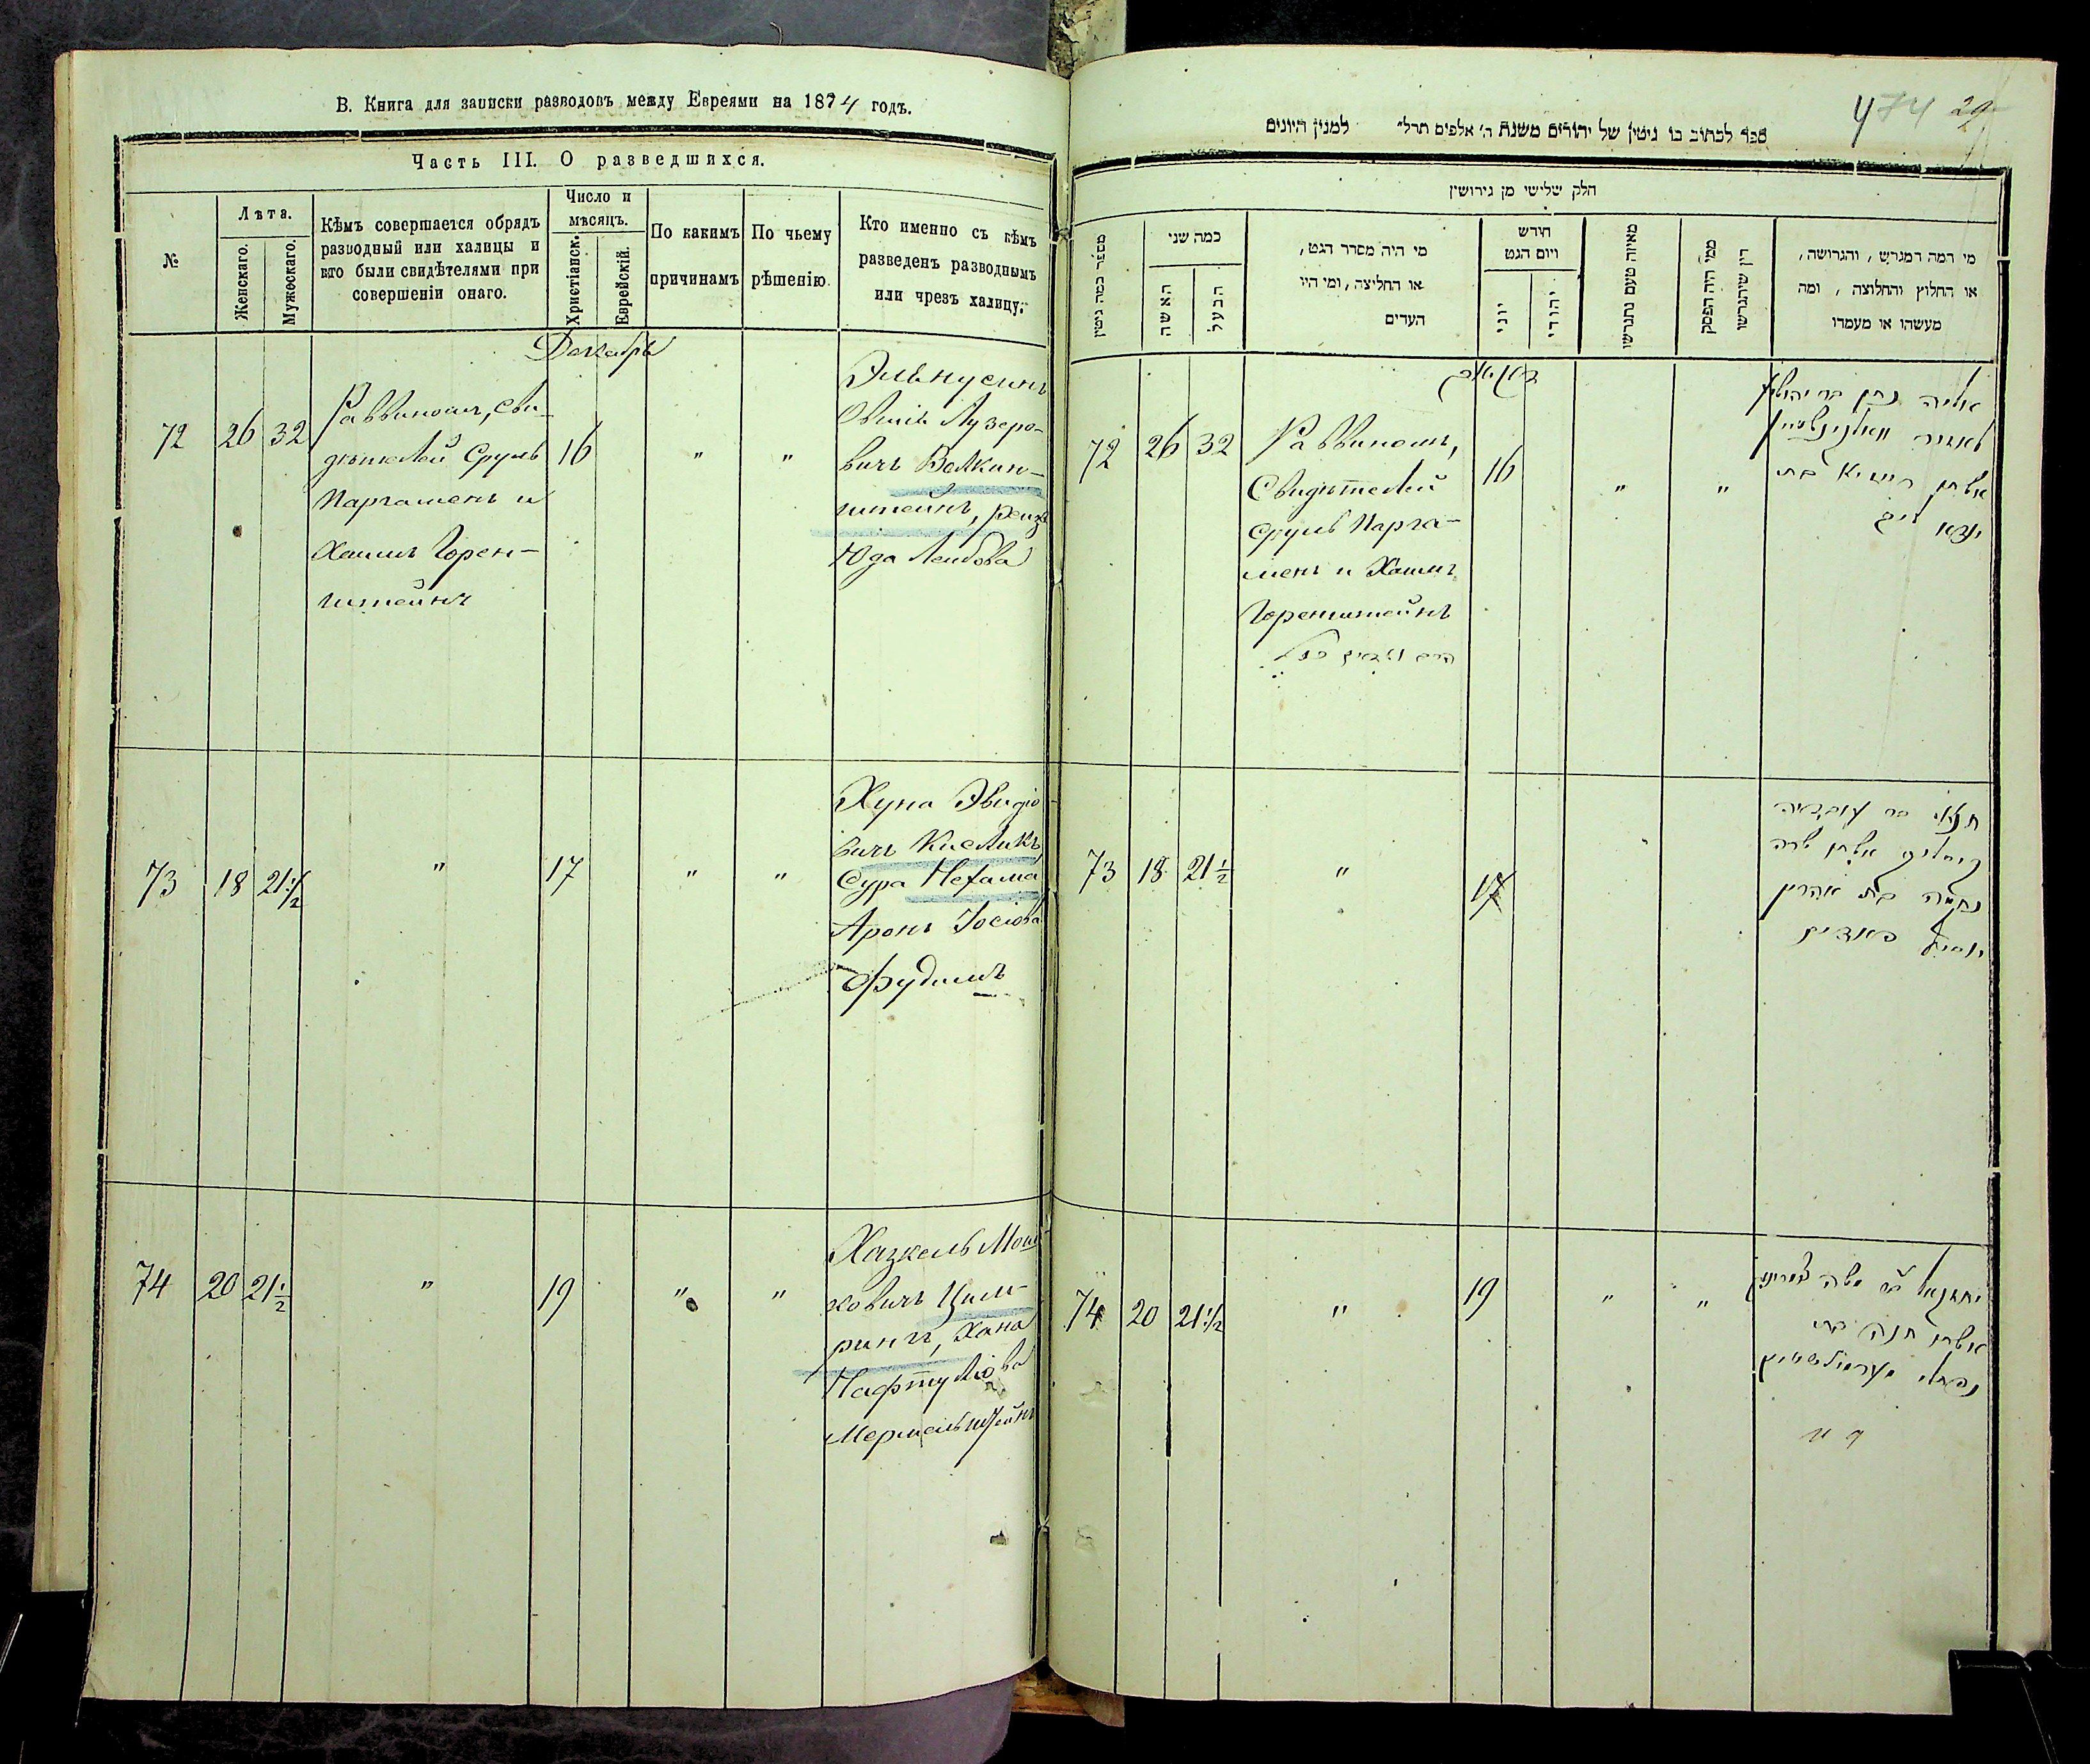 В. Книга для записки разводовъ между Евреями на 1874 годъ.
Часть III. О разведшихся.
№
Лѣта.
Женскаго.
Мужескаго.
Кѣмъ совершается обрядъ
разводный или халицы и
кто были свидѣтелями при
совершеніи онаго.
Число и
мѣсяцъ.
Христіанск.
Еврейскій.
По какимъ
причинамъ
По чьему
рѣшенію.
Кто именно съ кѣмъ
разведенъ разводнымъ
или чрезъ халицу.
Декабрь
72 26 32
Раввиномъ, сви-
дѣтелей Сруль
Паргаменъ и
Хаимъ Горен-
штейнъ
16
"
"
Овшiя Лузеро-
вичъ Валкин-
штейнъ,
Юда Леибова
73 18 21 1/2
"
17
"
"
Хуна Эвидіо-
вичъ Кисликъ,
Сура Нехама
Аронъ Іосіова
Фудимъ
74 20 21 1/2
"
19
"
"
Хазкель Мош-
ковичъ Цим-
рингъ, Хана
Нафтуліова
Мермельштейнъ
474 29
ספר לכתוב בו גיטין של יהודים משנת ה׳ אלפים תרל״ למנין היונים
חלק שלישי מן גירושין
מספר כמה גיטין
כמה שני
האשה
הבעל
מי היה מסדר הגט,
או החליצה, ומי היו
העדים
חודש
ויום הגט
יוני
יהודי
מאיזה טעם נתגרשו
ממי היה הפסק
דין שיתגרשו
מי המה המגרש, והגרושה,
או החלוץ והחלוצה, ומה
מעשהו או מעמדו
72 26 32
Раввиномъ,
Свидѣтелей
Сруль Парга-
менъ и Хаимъ
Горенштейнъ
16
"
"
73 18 21 1/2
"
17
חנא בר עובדיה
קיסליק אשתו שרה
נחמה בת אהרן
יוסף
74 20 21 1/2
"
19
"
"
יחזקאל בר משה צימרינג
אשתו חנה בת
נפתלי מערמילשטיין